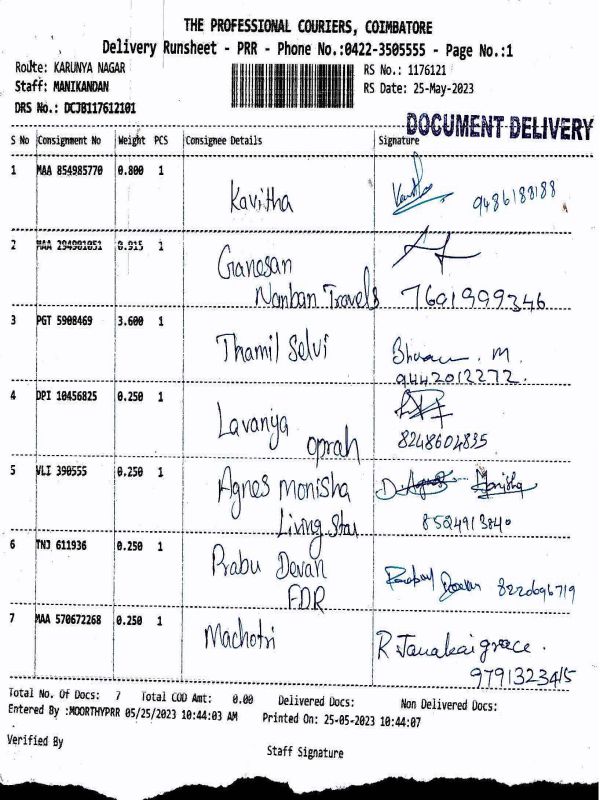 THE PROFESSIONAL COURIERS, COIMBATORE
Delivery Runsheet - PRR - Phone No.:0422-3505555 - Page No.:1
Route: KARUNYA NAGAR
RS No.: 1176121
Staff: MANIKANDAN
RS Date: 25-May-2023
DRS No.: DCJB117612101
DOCUMENT DELIVERY
S No Consignment No Weight PCS Consignee Details Signature
1 MAA 854985770 0.800 1
Kavitha 9486188188
2 MAA 294981051 0.915 1
Ganesan
Namban Travels 7601999346
3 PGT 5908469 3.600 1
Thamil Selvi M.
9442012272.
4 DPI 10456825 0.250 1
Lavanya
oprah 8248604835
5 VLI 390555 0.250 1
Agnes Monisha D. Agnes Monisha
Living Star 8524913840
6 TNJ 611936 0.250 1
Prabu Devan
FDR 8220696719
7 MAA 570672268 0.250 1
Machotri R. Janakaigrace.
9791323415
Total No. Of Docs: 7 Total COD Amt: 0.00 Delivered Docs: Non Delivered Docs:
Entered By :MOORTHYPRR 05/25/2023 10:44:03 AM Printed On: 25-05-2023 10:44:07
Verified By
Staff Signature